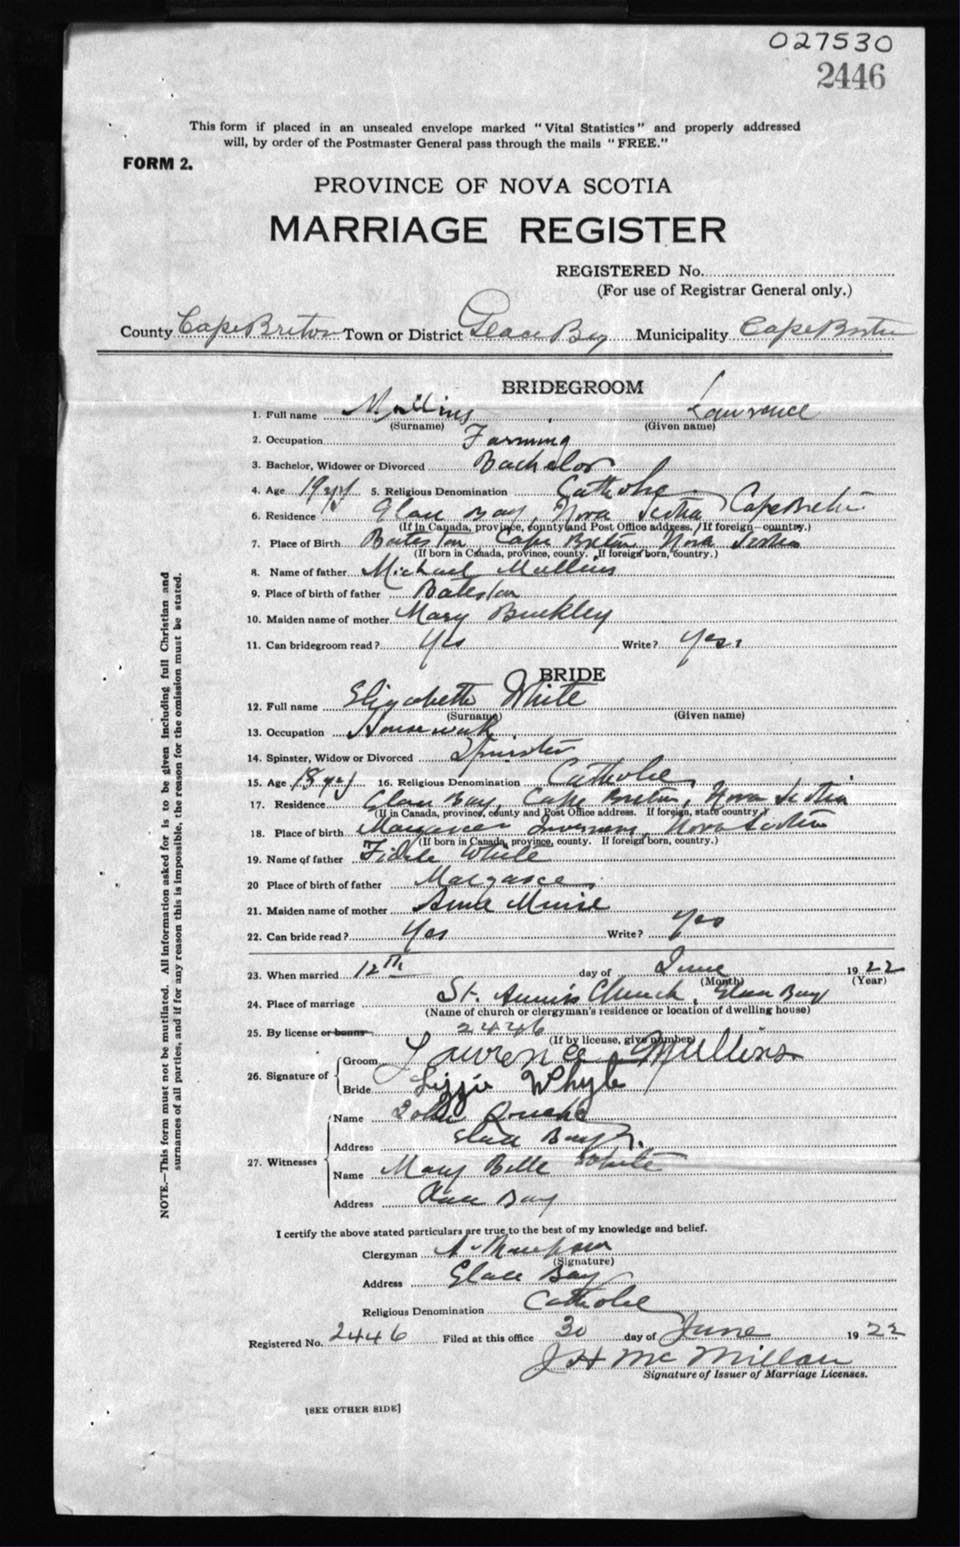 027530
2446
This form if placed in an unsealed envelope marked "Vital Statistics" and properly addressed
will, by order of the Postmaster General pass through the mails "FREE."
FORM 2.
PROVINCE OF NOVA SCOTIA
MARRIAGE REGISTER
REGISTERED No.
(For use of Registrar General only.)
County Cape Breton Town or District Glace Bay Municipality Cape Breton
BRIDEGROOM
1. Full name Mullins Lawrence
(Surname) (Given name)
2. Occupation Farming
3. Bachelor, Widower or Divorced Bachelor
4. Age 19 yrs 5. Religious Denomination Catholic
6. Residence Glace Bay, Nova Scotia Cape Breton
(If in Canada, province, county and Post Office address. If foreign—country.)
7. Place of Birth Bateston Cape Breton Nova Scotia
(If born in Canada, province, county. If foreign born, country.)
8. Name of father Michael Mullins
9. Place of birth of father Bateston
10. Maiden name of mother Mary Buckley
11. Can bridegroom read? Yes Write? Yes
BRIDE
12. Full name Elizabeth White
(Surname) (Given name)
13. Occupation Housework
14. Spinster, Widow or Divorced Spinster
15. Age 18 yrs 16. Religious Denomination Catholic
17. Residence Glace Bay, Cape Breton, Nova Scotia
(If in Canada, province, county and Post Office address. If foreign, state country)
18. Place of birth Margaree Inverness, Nova Scotia
(If born in Canada, province, county. If foreign born, country.)
19. Name of father Fidele White
20 Place of birth of father Margaree
21. Maiden name of mother Anne Muise
22. Can bride read? Yes Write? Yes
23. When married 12th day of June 1922
(Month) (Year)
24. Place of marriage St. Anne's Church, Glace Bay
(Name of church or clergyman's residence or location of dwelling house)
25. By license or banns 2446
(If by license, give number)
26. Signature of Groom Lawrence Mullins
Bride Lizzie Whyte
27. Witnesses Name John
Address Glace Bay
Name Mary Belle White
Address Glace Bay
I certify the above stated particulars are true to the best of my knowledge and belief.
Clergyman
(Signature)
Address Glace Bay
Religious Denomination Catholic
Registered No. 2446 Filed at this office 30 day of June 1922
J H McMillan
Signature of Issuer of Marriage Licenses.
[SEE OTHER SIDE]
NOTE.—This form must not be mutilated. All information asked for is to be given including full Christian and
surnames of all parties, and if for any reason this is impossible, the reason for the omission must be stated.